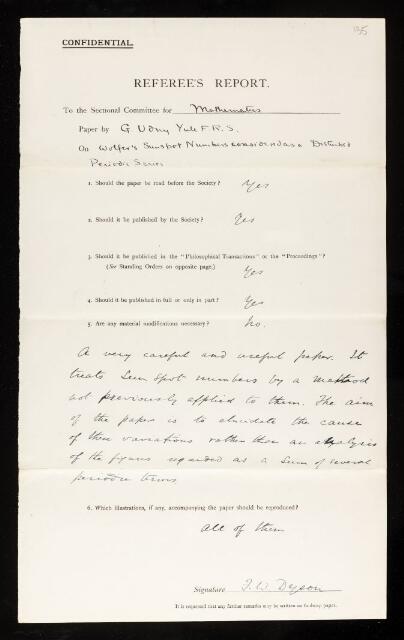 195
CONFIDENTIAL.
REFEREE'S REPORT.
To the Sectional Committee for Mathematics
Paper by G. Udny Yule F.R.S.
On Wolfer's Sunspot Numbers considered as a Disturbed
Periodic Series
1. Should the paper be read before the Society? Yes
2. Should it be published by the Society? Yes
3. Should it be published in the "Philosophical Transactions" or the "Proceedings"?
(See Standing Orders on opposite page.) Yes
4. Should it be published in full or only in part? Yes
5. Are any material modifications necessary? No.
A very careful and useful paper. It
treats Sun Spot numbers by a method
not previously applied to them. The aim
of the paper is to elucidate the cause
of their variations rather than an analysis
of the figures regarded as a sum of several
periodic terms
6. Which illustrations, if any, accompanying the paper should be reproduced?
All of them
Signature F. W. Dyson
It is requested that any further remarks may be written on foolscap paper.